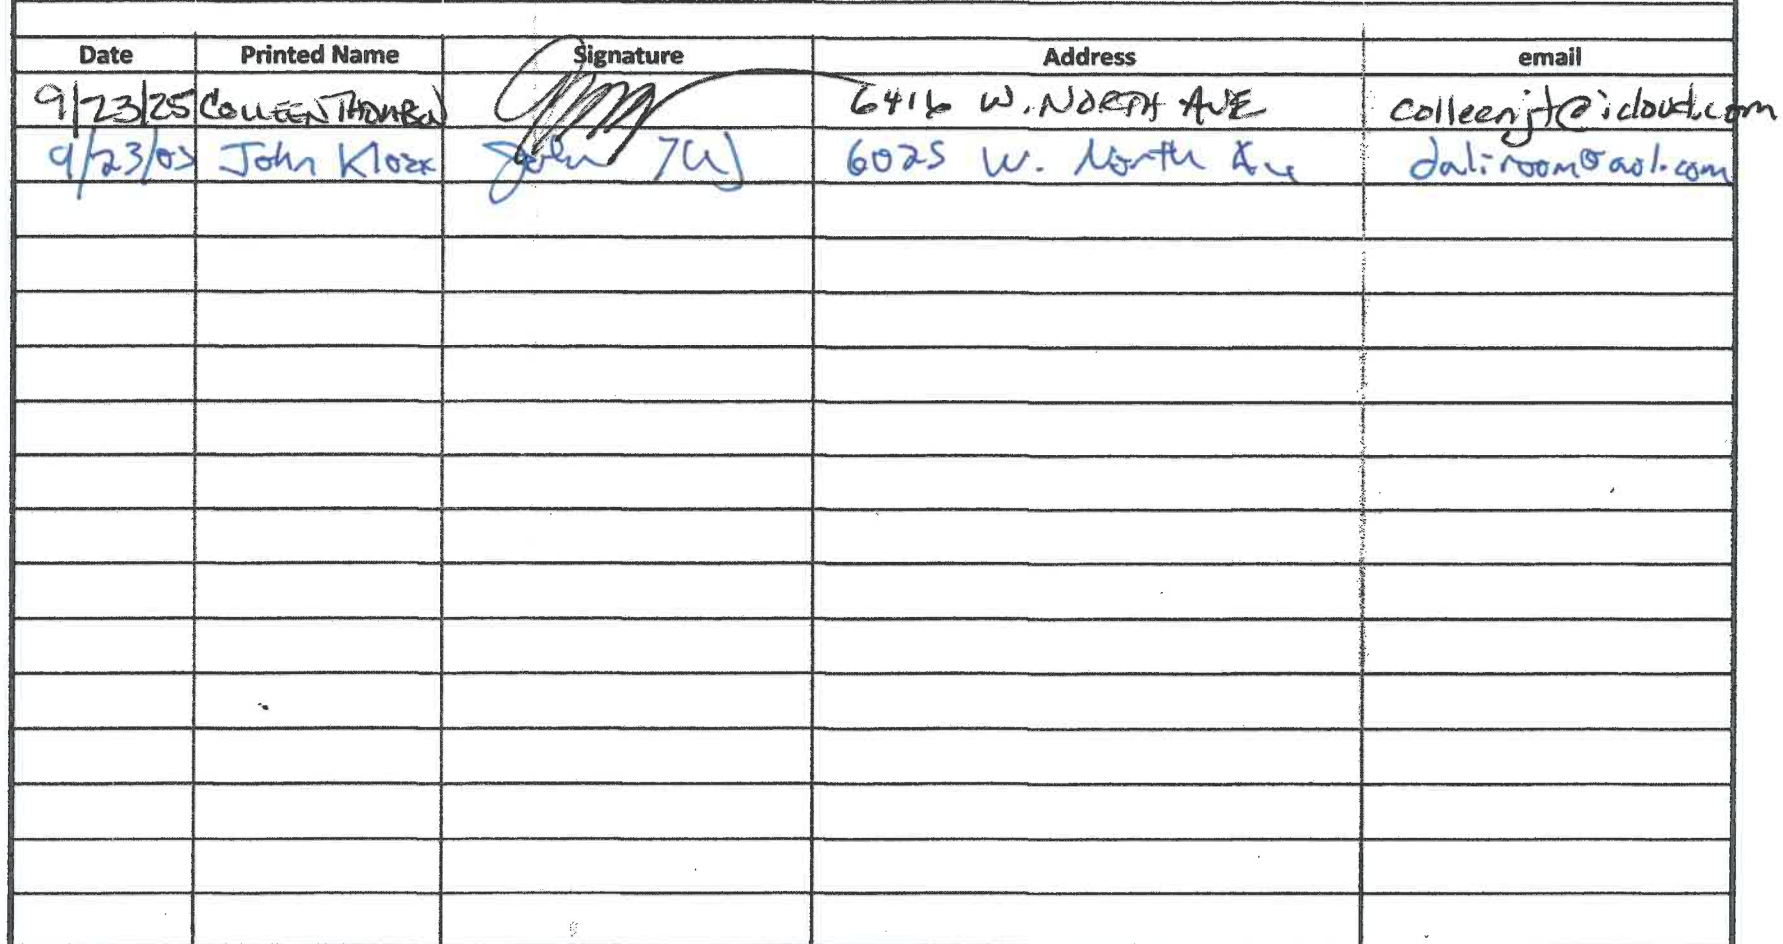 Date Printed Name Signature Address email
9/23/25 COLLEEN THOMSON 6416 W. NORTH AVE colleenjt@icloud.com
9/23/03 John 6025 W. North Ave daliroom@aol.com